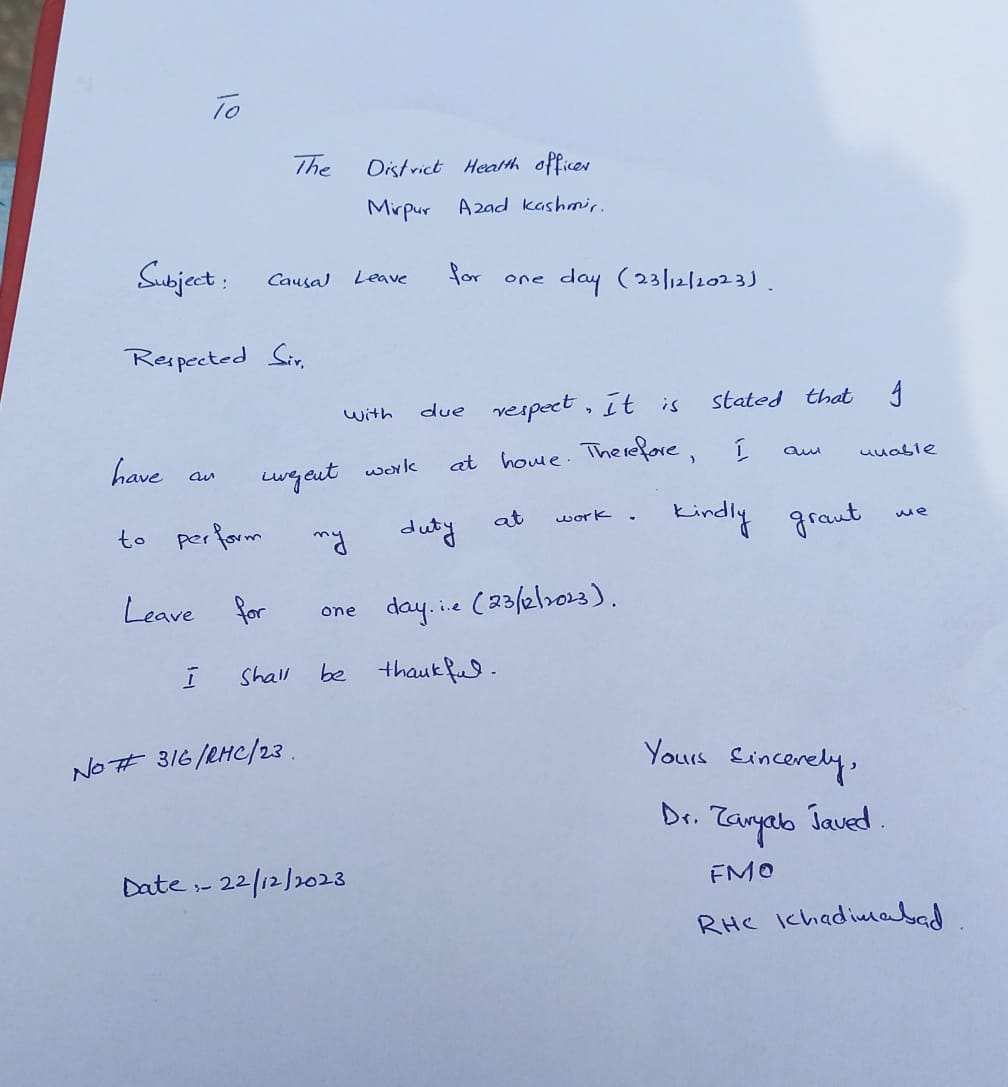 To
The District Health officer
Mirpur Azad Kashmir.
Subject: Causal Leave for one day (23/12/2023).
Respected Sir,
With due respect, It is stated that I
have an urgent work at home. Therefore, I am unable
to perform my duty at work. Kindly grant me
Leave for one day. i.e (23/12/2023).
I shall be thankful.
No # 316/RHC/23.
Yours Sincerely,
Dr. Zaryab Javed.
FMO
Date :- 22/12/2023
RHC Khadimabad.